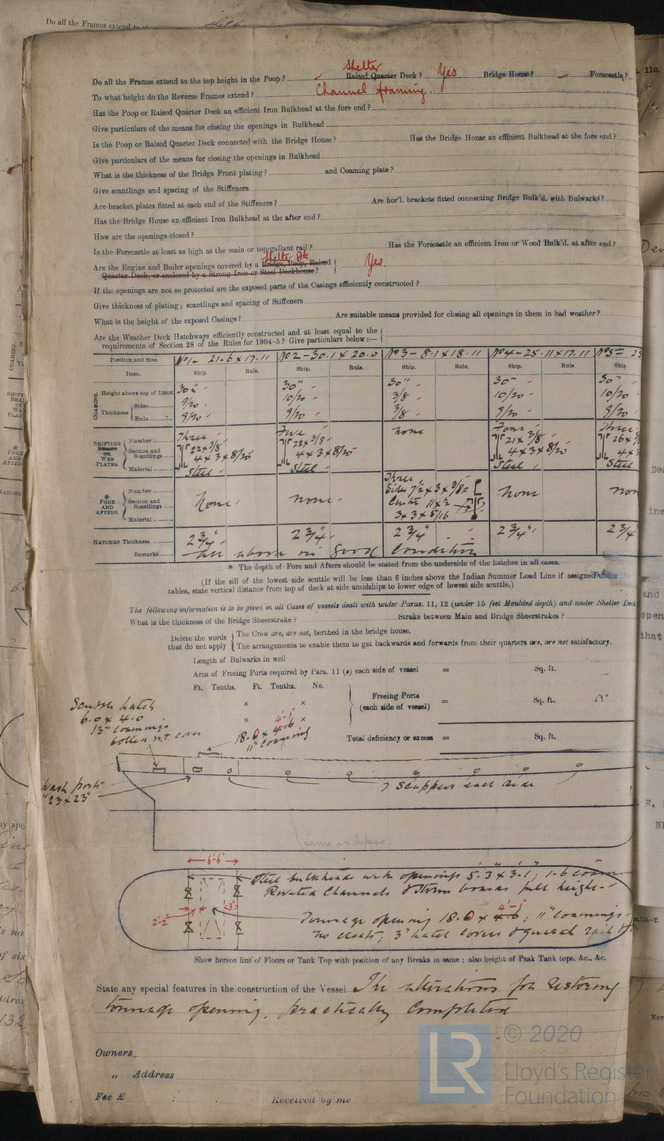 Do all the Frames extend to the
Shelter
Do all the Frames extend to the top height in the Poop? Raised Quarter Deck? Yes Bridge House? Forecastle?
To what height do the Reverse Frames extend? Channel framing.
Has the Poop or Raised Quarter Deck an efficient Iron Bulkhead at the fore end?
Give particulars of the means for closing the openings in Bulkhead
Is the Poop or Raised Quarter Deck connected with the Bridge House? Has the Bridge House an efficient Bulkhead at the fore end?
Give particulars of the means for closing the openings in Bulkhead
What is the thickness of the Bridge Front plating? and Coaming plate?
Give scantlings and spacing of the Stiffeners
Are bracket plates fitted at each end of the Stiffeners? Are hor'l. brackets fitted connecting Bridge Bulk'd. with Bulwarks?
Has the Bridge House an efficient Iron Bulkhead at the after end?
How are the openings closed?
Is the Forecastle at least as high as the main or top-gallant rail? Has the Forecastle an efficient Iron or Wood Bulk'd. at after end?
Shelter Dk
Are the Engine and Boiler openings covered by a Bridge, Poop, Raised
Quarter Deck, or enclosed by a Strong Iron or Steel Deckhouse? Yes.
If the openings are not so protected are the exposed parts of the Casings efficiently constructed?
Give thickness of plating; scantlings and spacing of Stiffeners
What is the height of the exposed Casings? Are suitable means provided for closing all openings in them in bad weather?
Are the Weather Deck Hatchways efficiently constructed and at least equal to the
requirements of Section 28 of the Rules for 1904-5? Give particulars below:—
Position and Size. No 1 - 21.6 x 17.11 No 2 - 30.1 x 20.0 No 3 - 8.1 x 18.11 No 4 - 25.11 x 17.11 No 5 =
Item. Ship. Rule. Ship. Rule. Ship. Rule. Ship. Rule. Ship.
COAMING. Height above top of Deck 30" 30" 30" 30" 30"
Thickness Sides 9/20 10/20 3/8 10/20 10/20
Ends 9/20 9/20 3/8 9/20 9/20
SHIFTING BEAMS OR WEB PLATES. Number Three Five none Four Three
Section and Scantlings 22 x 3/8 22 x 3/8 21 x 3/8
4 x 3 x 8/20 4 x 3 x 8/20 4 x 3 x 8/20
Material Steel Steel Steel Steel
* FORE AND AFTERS. Number Three
Section and Scantlings None none Sides 7½ x 3 x 3/8 none
Material 3 x 3 x 5/16
HATCHES Thickness 2 3/4" 2 3/4" 2 3/4" 2 3/4" 2 3/4
Remarks all above in good condition
* The depth of Fore and Afters should be stated from the underside of the hatches in all cases.
(If the sill of the lowest side scuttle will be less than 6 inches above the Indian Summer Load Line if assigned
tables, state vertical distance from top of deck at side amidships to lower edge of lowest side scuttle.)
The following information is to be given in all Cases of vessels dealt with under Paras. 11, 12 (under 15 feet Moulded depth) and under Shelter Deck
What is the thickness of the Bridge Sheerstrake? Strake between Main and Bridge Sheerstrakes?
Delete the words that do not apply
The Crew are, are not, berthed in the bridge house.
The arrangements to enable them to get backwards and forwards from their quarters are, are not satisfactory.
Length of Bulwarks in well
Area of Freeing Ports required by Para. 11 (e) each side of vessel = Sq. ft.
Ft. Tenths. Ft. Tenths. No.
Freeing Ports (each side of vessel) = Sq. ft.
Total deficiency or excess = Sq. ft.
Scuttle hatch
6.0 x 4.0
13" coamings
bolted W.T. cover
4'-1"
18.0 x 4.6
11" coaming
Wash ports
23 x 23"
7 Scuppers each side
6'-6"
Steel bulkheads with openings 5.3 x 3.1; 1.6
Riveted Channels & Storm boards full height
2'-2"
4'-1"
Tonnage opening 18.0 x 4.6; 11" coamings
no cleats; 3" hatch covers
Show hereon line of Floors or Tank Top with position of any Breaks in same; also height of Peak Tank tops, &c., &c.
State any special features in the construction of the Vessel The alterations for restoring
tonnage opening, practically completed
Owners
„ Address
Fee £ Received by me
© 2020
LR
Lloyd's Register
Foundation